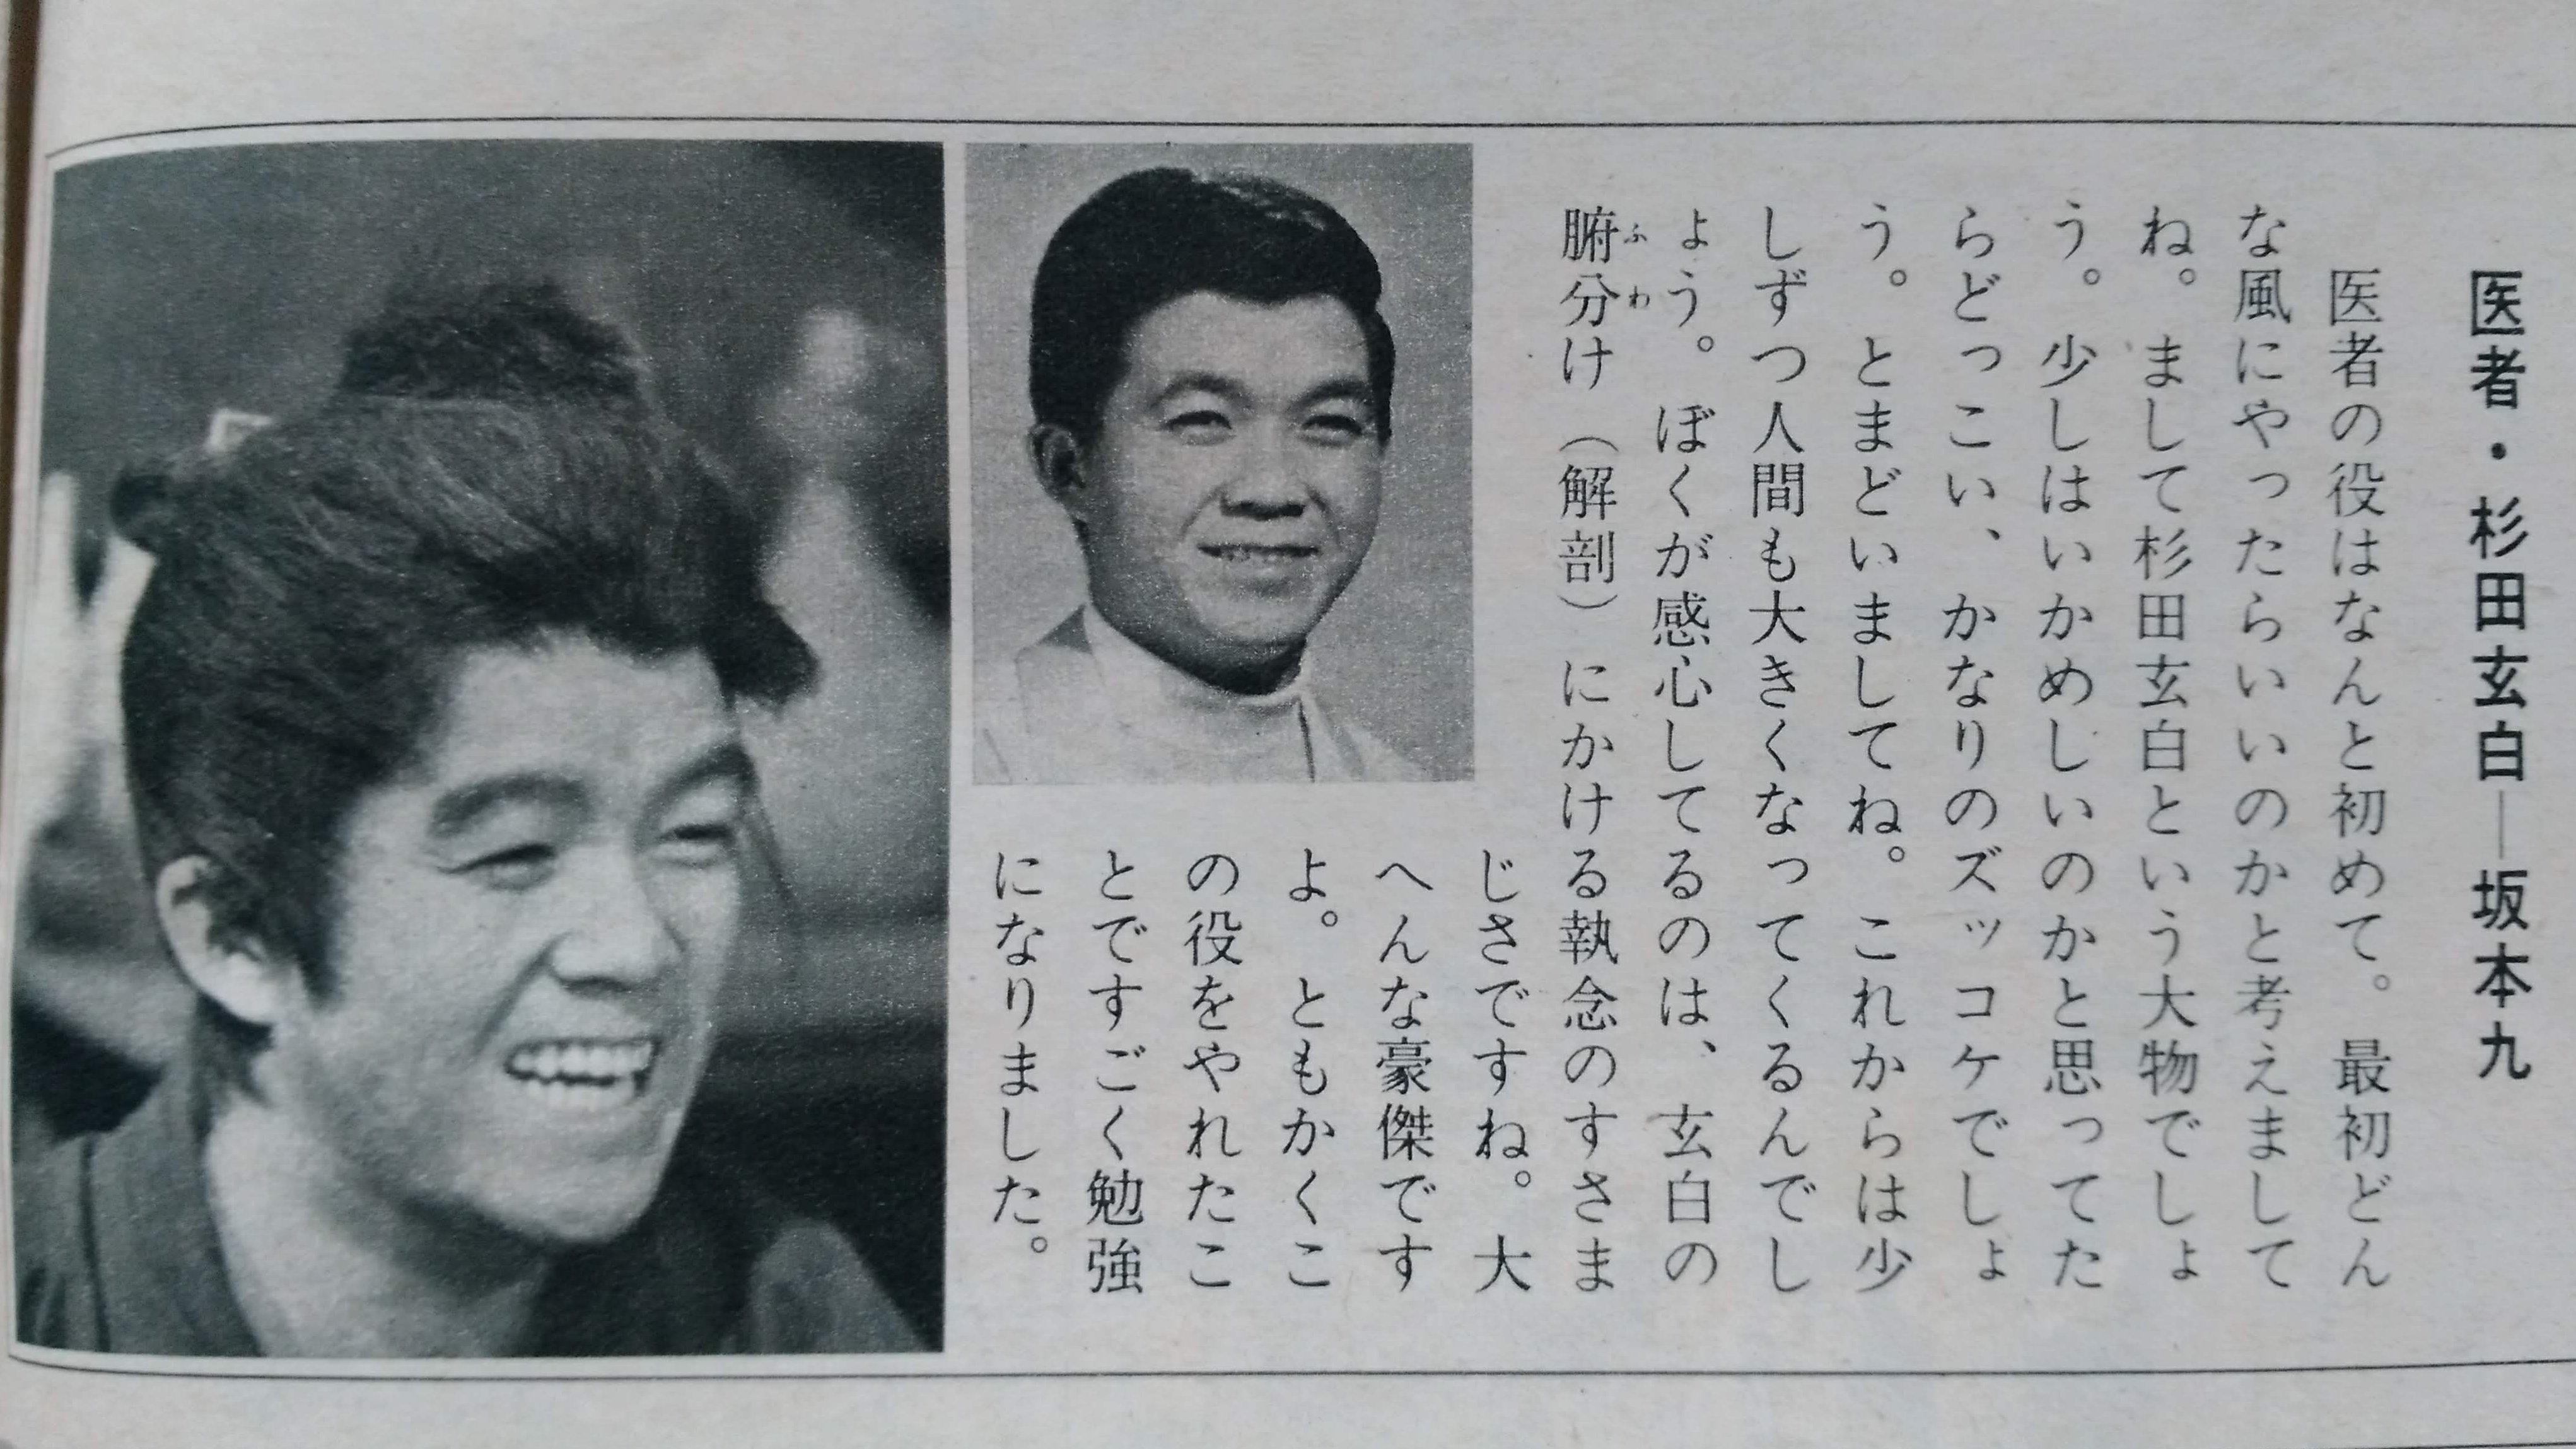 医者・杉田玄白―坂本九
医者の役はなんと初めて。最初どん
な風にやったらいいのかと考えまして
ね。まして杉田玄白という大物でしょ
う。少しはいかめしいのかと思ってた
らどっこい、かなりのズッコケでしょ
う。とまどいましてね。これからは少
しずつ人間も大きくなってくるんでし
ょう。ぼくが感心してるのは、玄白の
腑分け（解剖）にかける執念のすさま
ふわ
じさですね。大
へんな豪傑です
よ。ともかくこ
の役をやれたこ
とですごく勉強
になりました。